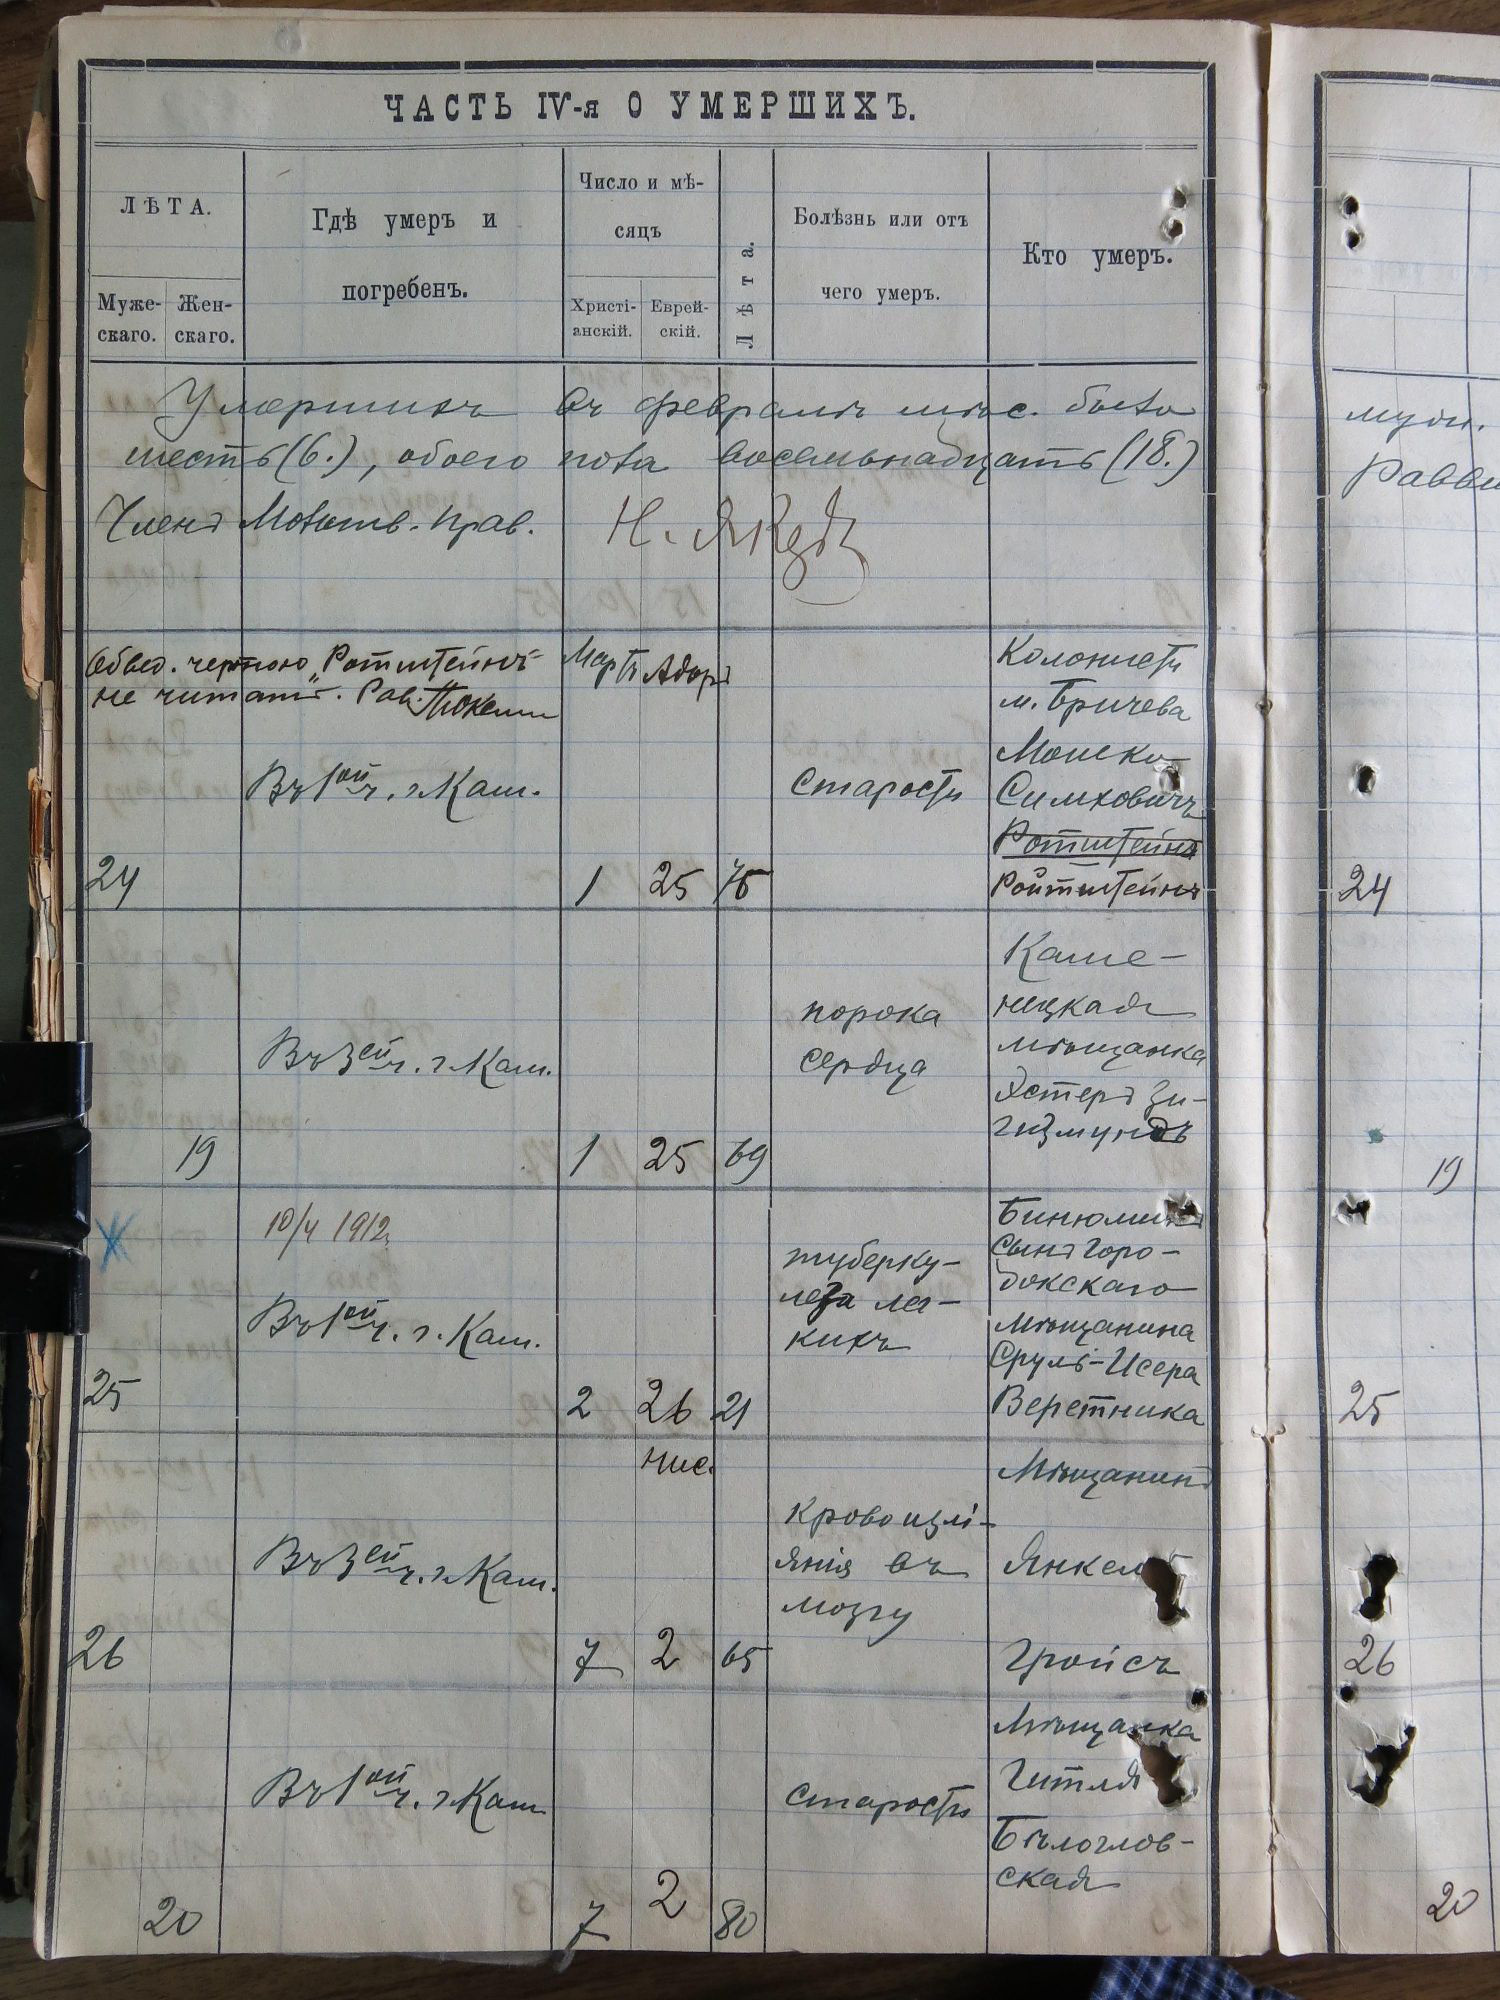 ЧАСТЬ IV-я О УМЕРШИХЪ.
ЛѢТА.
Муже-
скаго.
Жен-
скаго.
Гдѣ умеръ и
погребенъ.
Число и мѣ-
сяцъ
Христі-
анскій.
Еврей-
скій.
Лѣта.
Болѣзнь или отъ
чего умеръ.
Кто умеръ.
Умершихъ въ февралѣ мѣс. было
шесть (6.), обоего пола восемьнадцать (18.)
Членъ Молитв. прав.
муж.
Обвед. чертою „Ротштейнъ"
не читать. Рав.
Мартъ Адоръ
Въ 1ой ч. г. Кам.
24
1 25 75
Старости
Колонистъ
м. Бричева
Мошко
Симховичъ
Ротштейнъ
Ройтштейнъ
24
Въ 3ей ч. г. Кам.
19
1 25 69
порока
сердца
Каме-
нецкая
мѣщанка
Эстеръ Зи-
гизмундъ
19
10/4 1912
Въ 1ой ч. г. Кам.
25
2 26 21
туберку-
леза лег-
кихъ
Бинюминъ
сынъ Горо-
докскаго
Мѣщанина
Сруль-Исера
Веретника
25
Нис.
Въ 3ей ч. г. Кам.
26
7 2 65
Кровоизлі-
янія въ
мозгу
Мѣщанинъ
Янкель
Гройсъ
26
Въ 1ой ч. г. Кам.
20
7 2 80
Старости
Мѣщанка
Гитля
Бѣлоглов-
ская
20